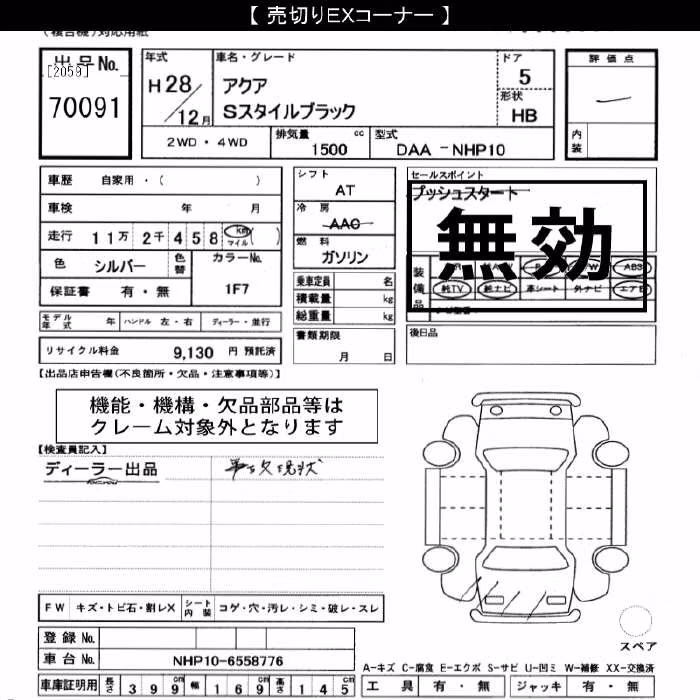 【 売切りEXコーナー 】
出品No.
[2059]
70091
年式
H28/12月
車名・グレード
アクア
Sスタイルブラック
ドア
5
形状
HB
評価点
内装
2WD・4WD
排気量 cc
1500
型式
DAA-NHP10
車歴 自家用・( )
車検 年 月
走行 11万 2千 458 Km マイル ( )
色 シルバー 色替 カラーNo. 1F7
保証書 有・無
モデル年式 年 ハンドル 左・右 ディーラー・並行
リサイクル料金 9,130 円 預託済
シフト
AT
冷房
AAC
燃料
ガソリン
乗車定員 名
積載量 kg
総重量 kg
書類期限
月 日
セールスポイント
プッシュスタート
無効
装備品
純TV 純ナビ 革シート 外ナビ エアB
後日品
【出品店申告欄(不良箇所・欠品・注意事項等)】
機能・機構・欠品部品等は
クレーム対象外となります
【検査員記入】
ディーラー出品
FW キズ・トビ石・割レX シート内装 コゲ・穴・汚レ・シミ・破レ・スレ
登録No.
車台No. NHP10-6558776
車庫証明用 長さ 399cm 幅 169cm 高さ 145cm
スペア
A-キズ C-腐食 E-エクボ S-サビ U-凹ミ W-補修 XX-交換済
工具 有・無 ジャッキ 有・無